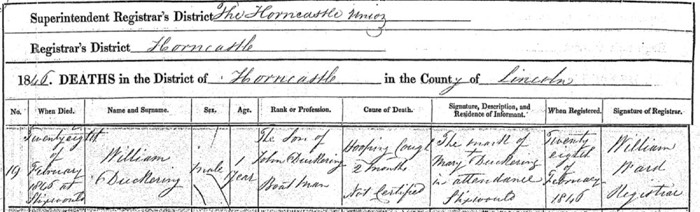 Superintendent Registrar's District The Horncastle Union
Registrar's District Horncastle
1846. DEATHS in the District of Horncastle in the County of Lincoln
No. When Died. Name and Surname. Sex. Age. Rank or Profession. Cause of Death. Signature, Description, and Residence of Informant. When Registered. Signature of Registrar.
19
Twenty eight
of
February
1846 at
William
Duckering
Male
1
Year
The Son of
John Duckering
Boatman
Hooping Cough
2 months
Not Certified
The mark of
Mary Duckering
in attendance
Twenty
eighth
of
February
1846
William
Ward
Registrar